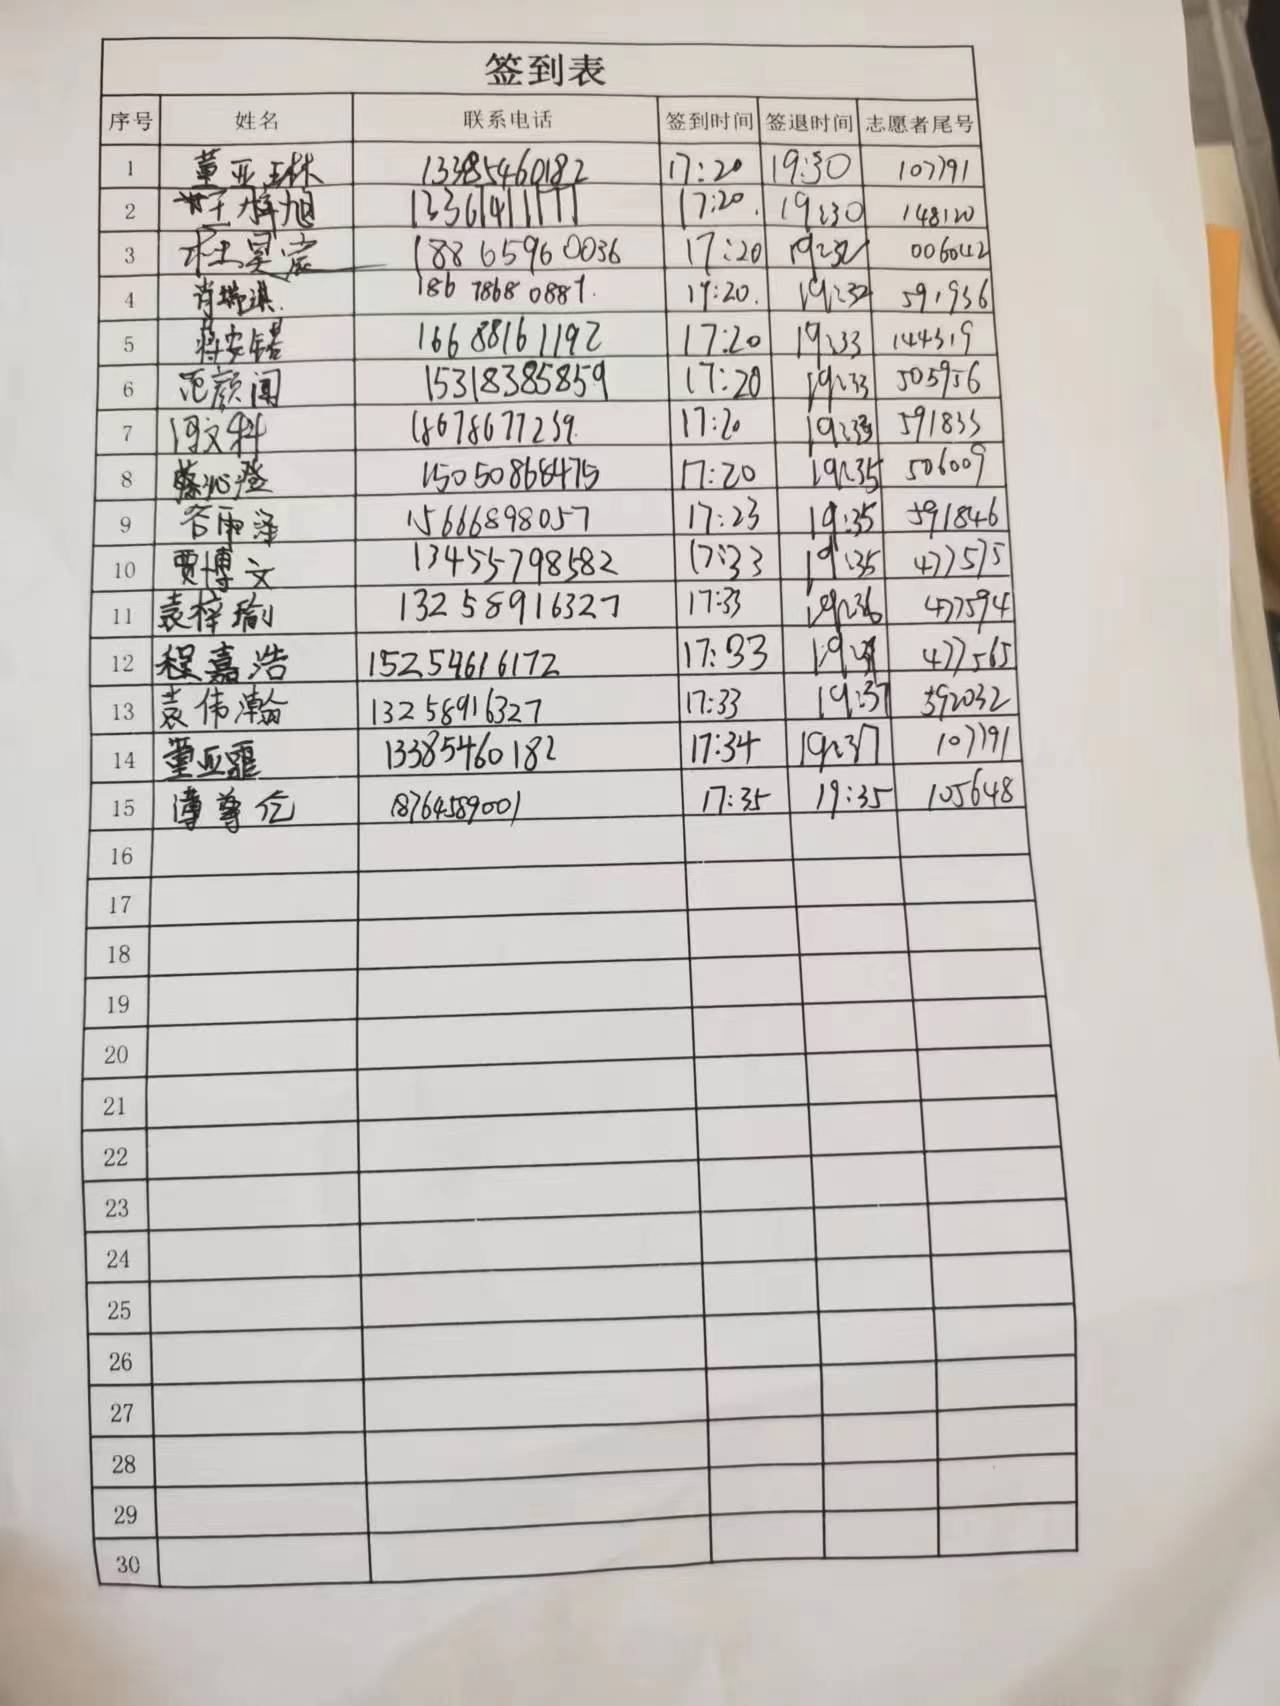 签到表
序号 姓名 联系电话 签到时间 签退时间 志愿者尾号
1 董亚琳 13385460182 17:20 19:30 107791
2 旭 17:20. 19:30 148120
3 杜昊宸 18865960036 17:20 19:32 006042
4 肖瑞淇. 186 7868 0887. 17:20. 19:32 591936
5 蒋安锘 16688161192 17:20 19:33 144319
6 范颜闻 15318385859 17:20 19:33 505956
7 闫文科 18678677239. 17:20 19:33 591833
8 蔡沁澄 15050868475 17:20 19:35 506009
9 谷雨泽 15666898057 17:23 19:35 591846
10 贾博文 13455798582 17:33 19:35 477575
11 袁梓瑜 13258916327 17:33 19:36 477594
12 程嘉浩 15254616172 17:33 477565
13 袁伟瀚 13258916327 17:33 19:37 592032
14 董亚霏 13385460182 17:34 19:37 107791
15 尊 18764589001 17:35 19:35 105648
16
17
18
19
20
21
22
23
24
25
26
27
28
29
30